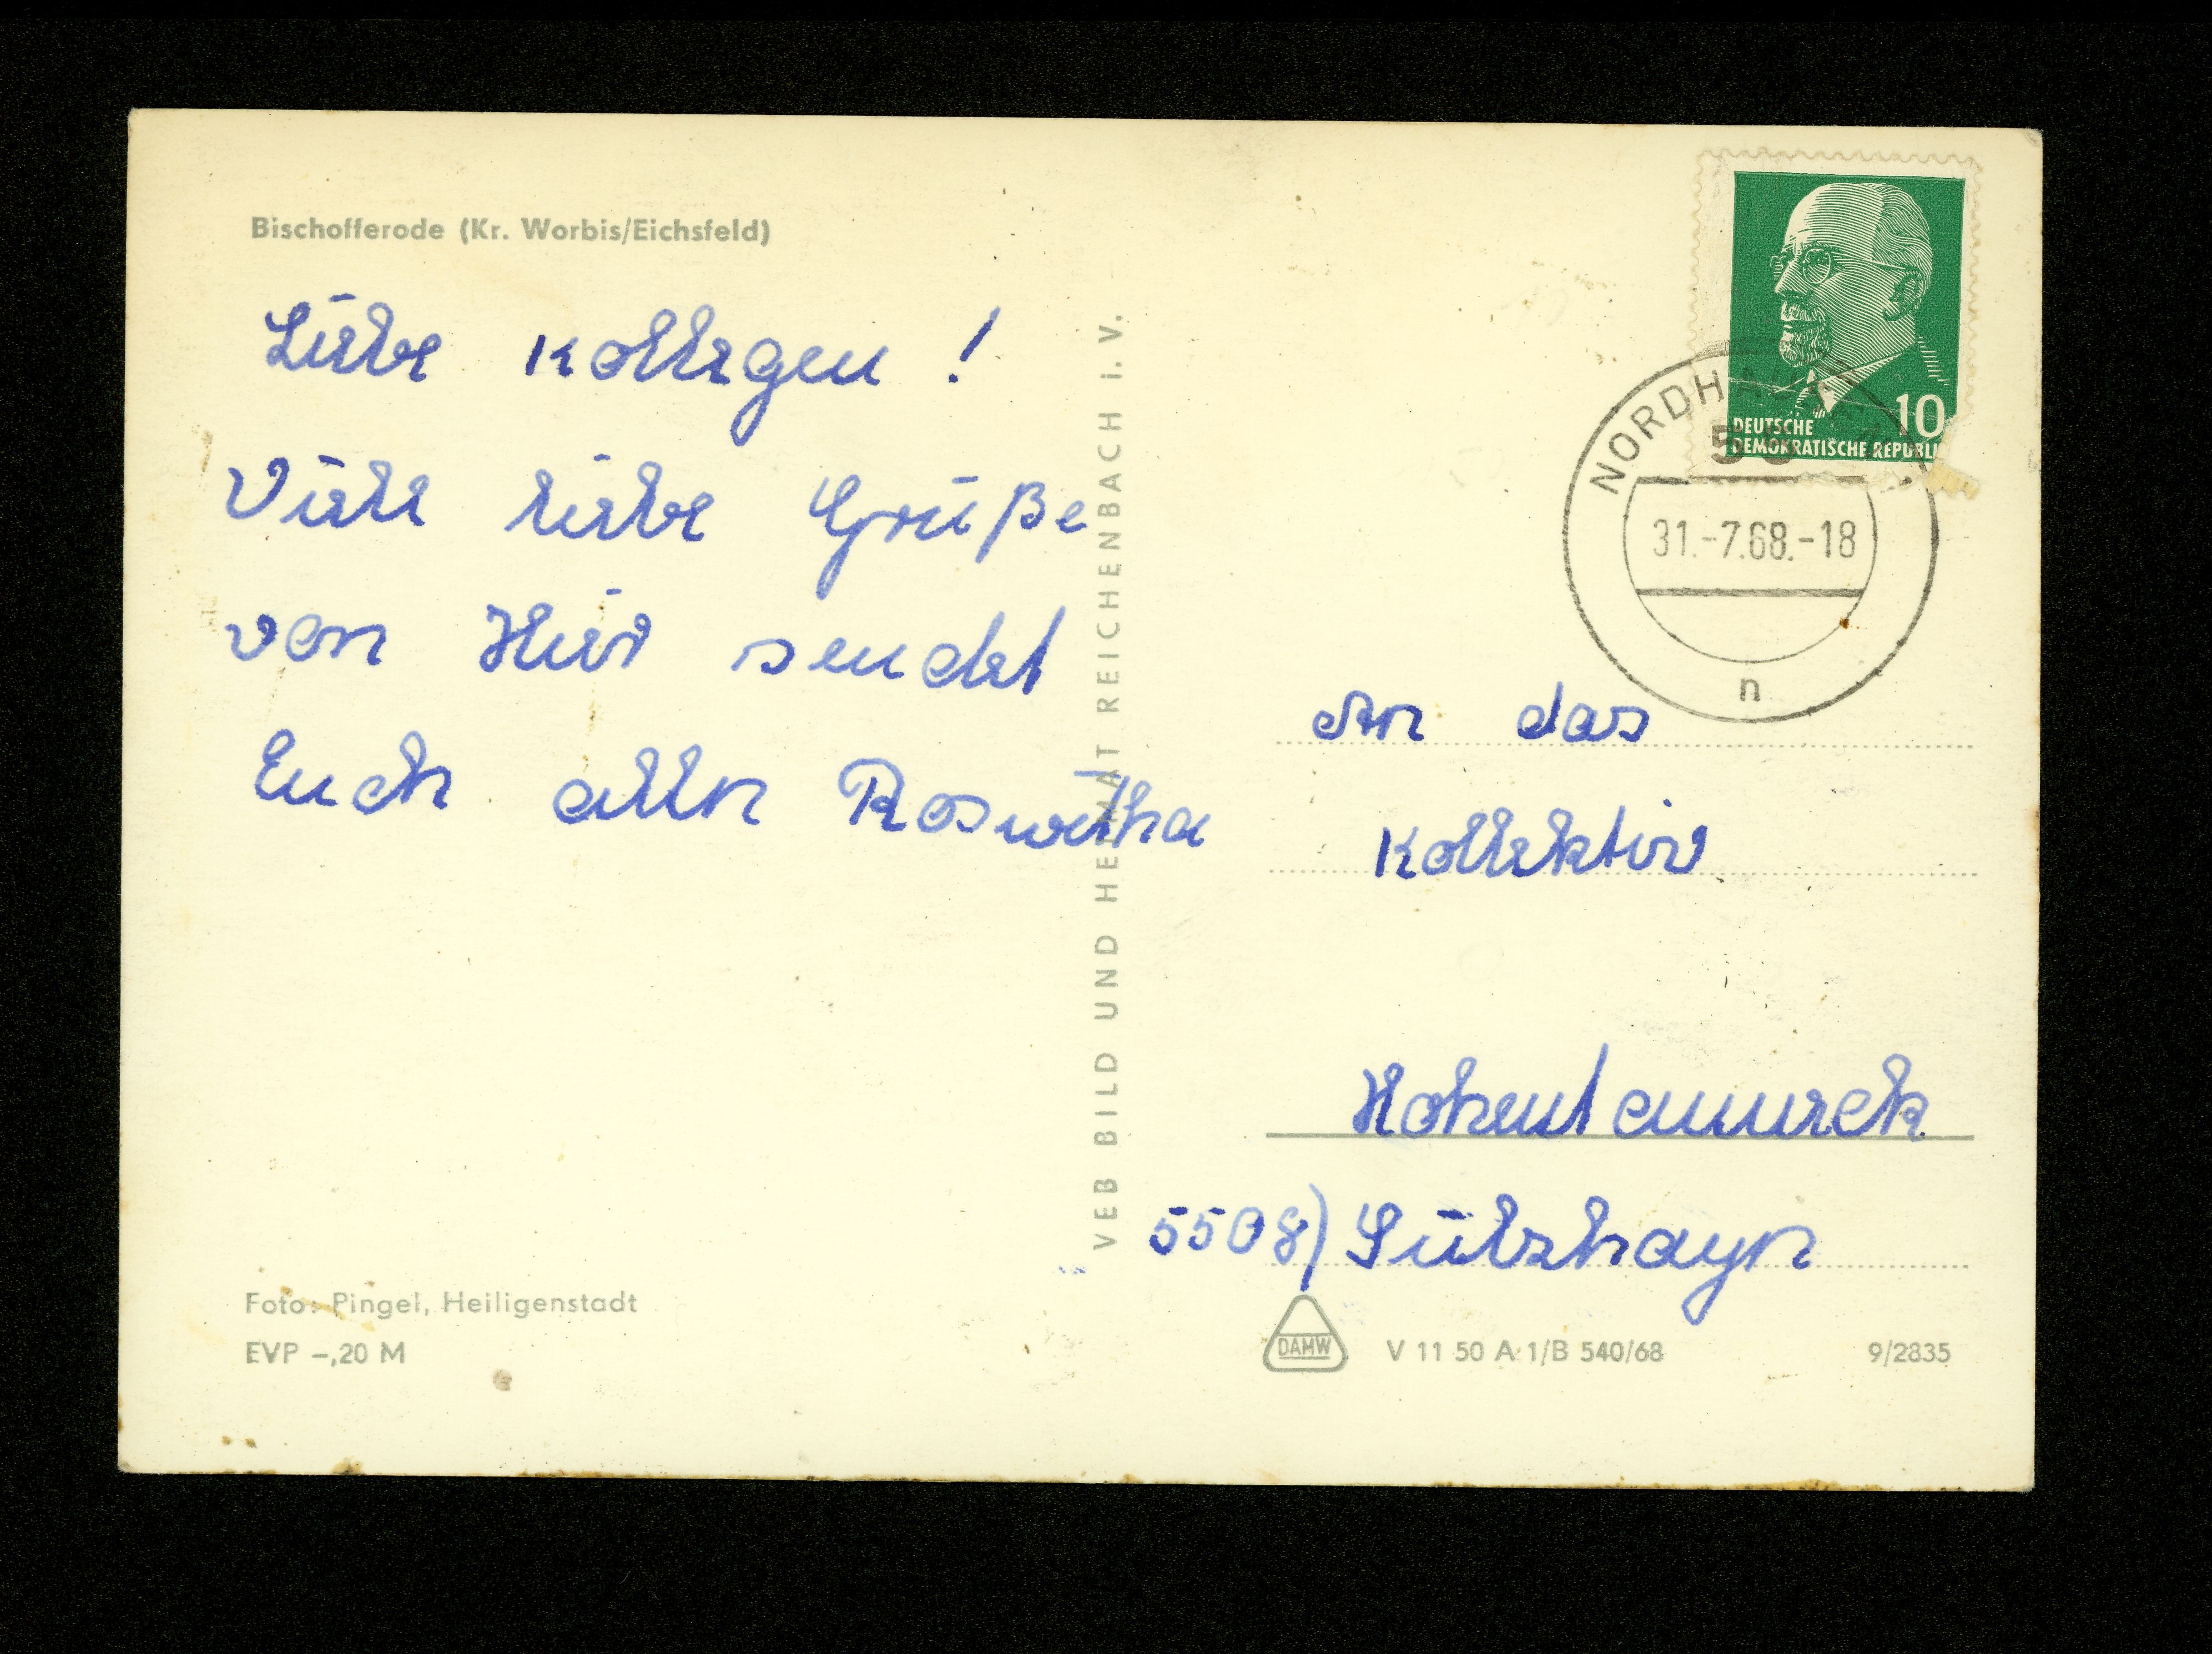 Bischofferode (Kr. Worbis/Eichsfeld)
Liebe Kollegen !
Viele liebe Grüße
von Hier sendet
Euch alln Roswitha
Foto: Pingel, Heiligenstadt
EVP –,20 M
VEB BILD UND HEIMAT REICHENBACH i. V.
10
DEUTSCHE
DEMOKRATISCHE REPUBLI
NORDHAUSEN
31.-7.68.-18
n
An das
Kollektiv
5508) Sülzhayn
DAMW
V 11 50 A 1/B 540/68
9/2835